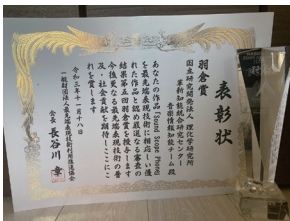 表彰状
羽倉賞
国立研究開発法人 理化学研究所
革新知能統合研究センター
音楽情報知能チーム 殿
あなたの作品「Sound Scope Phone」
を最先端表現技術に相応しい優
れた作品と認め厳正なる審査の
結果第五回羽倉賞を授与します
今後更なる最先端表現技術の普
及・社会貢献を期待しここにこ
れを賞します
令和三年十一月十八日
一般財団法人最先端表現技術利用推進協会
会長 長谷川 章